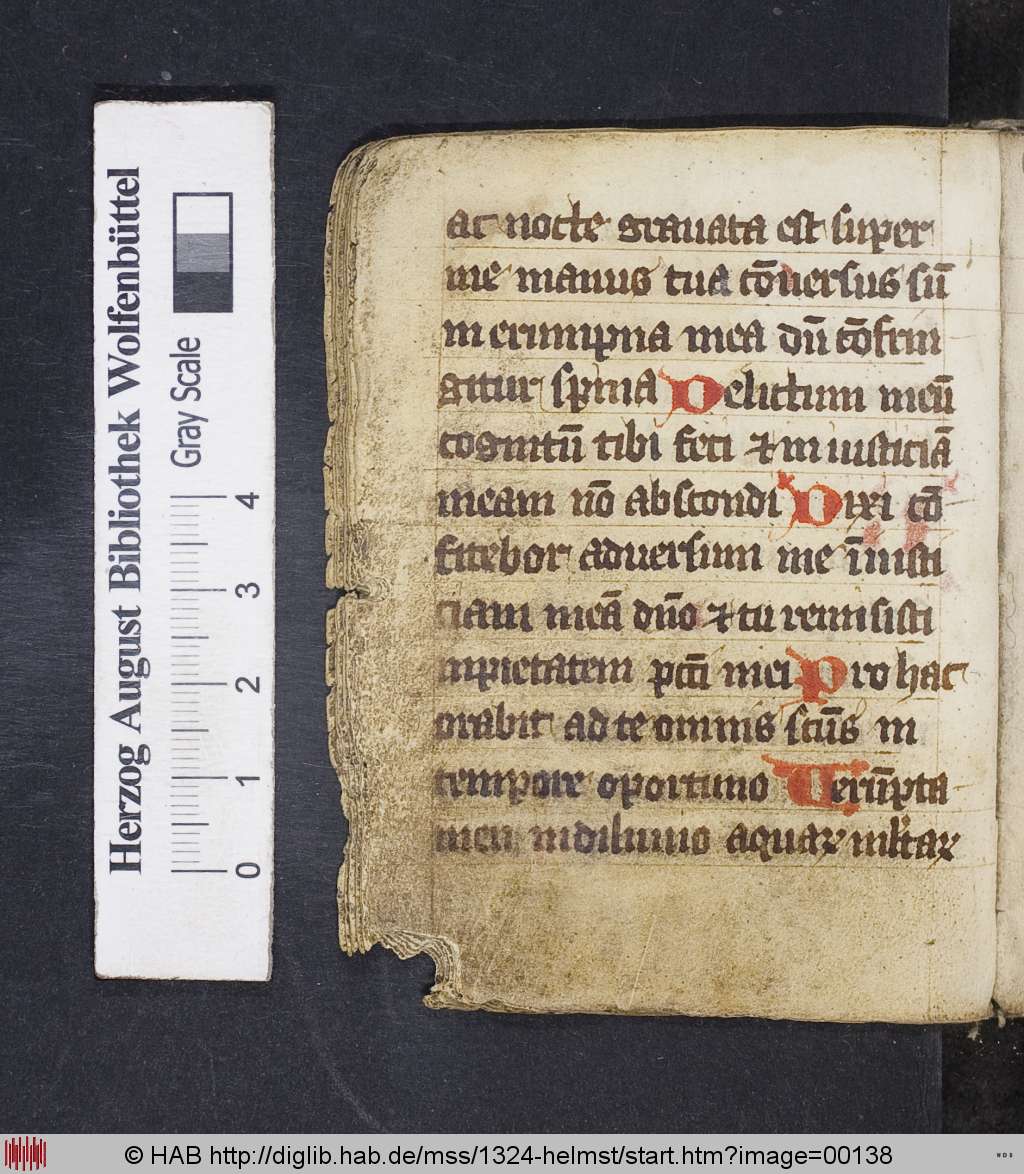 Herzog August Bibliothek Wolfenbüttel
Gray Scale
0 1 2 3 4
ac nocte grauata est super
me manus tua cōuersus sū
in erumpna mea dū cōfrin
gitur spina Delictum meū
cognitū tibi feci ⁊ in iusticiā
meam nō abscondi Dixi cō
fitebor aduersum me īiusti
ciam meā dn̄o ⁊ tu remisisti
inpietatem pcc̄i mei Pro hac
orabit ad te omnis scūs in
tempore oportuno Verūpta
men indiluuio aquaꝝ ml̓taꝝ
© HAB http://diglib.hab.de/mss/1324-helmst/start.htm?image=00138